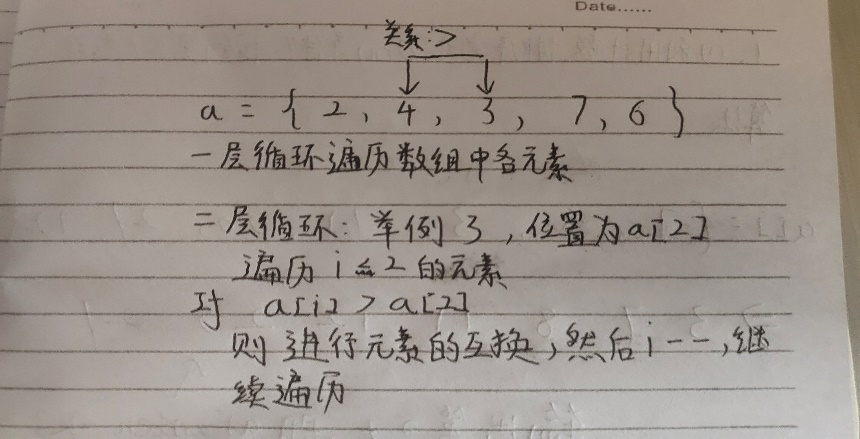 Date......
关系:>
a = { 2, 4, 3, 7, 6 }
一层循环遍历数组中各元素
二层循环: 举例 3, 位置为a[2]
遍历 i ≤ 2 的元素
对 a[i] > a[2]
则 进行元素的互换, 然后 i--, 继
续遍历